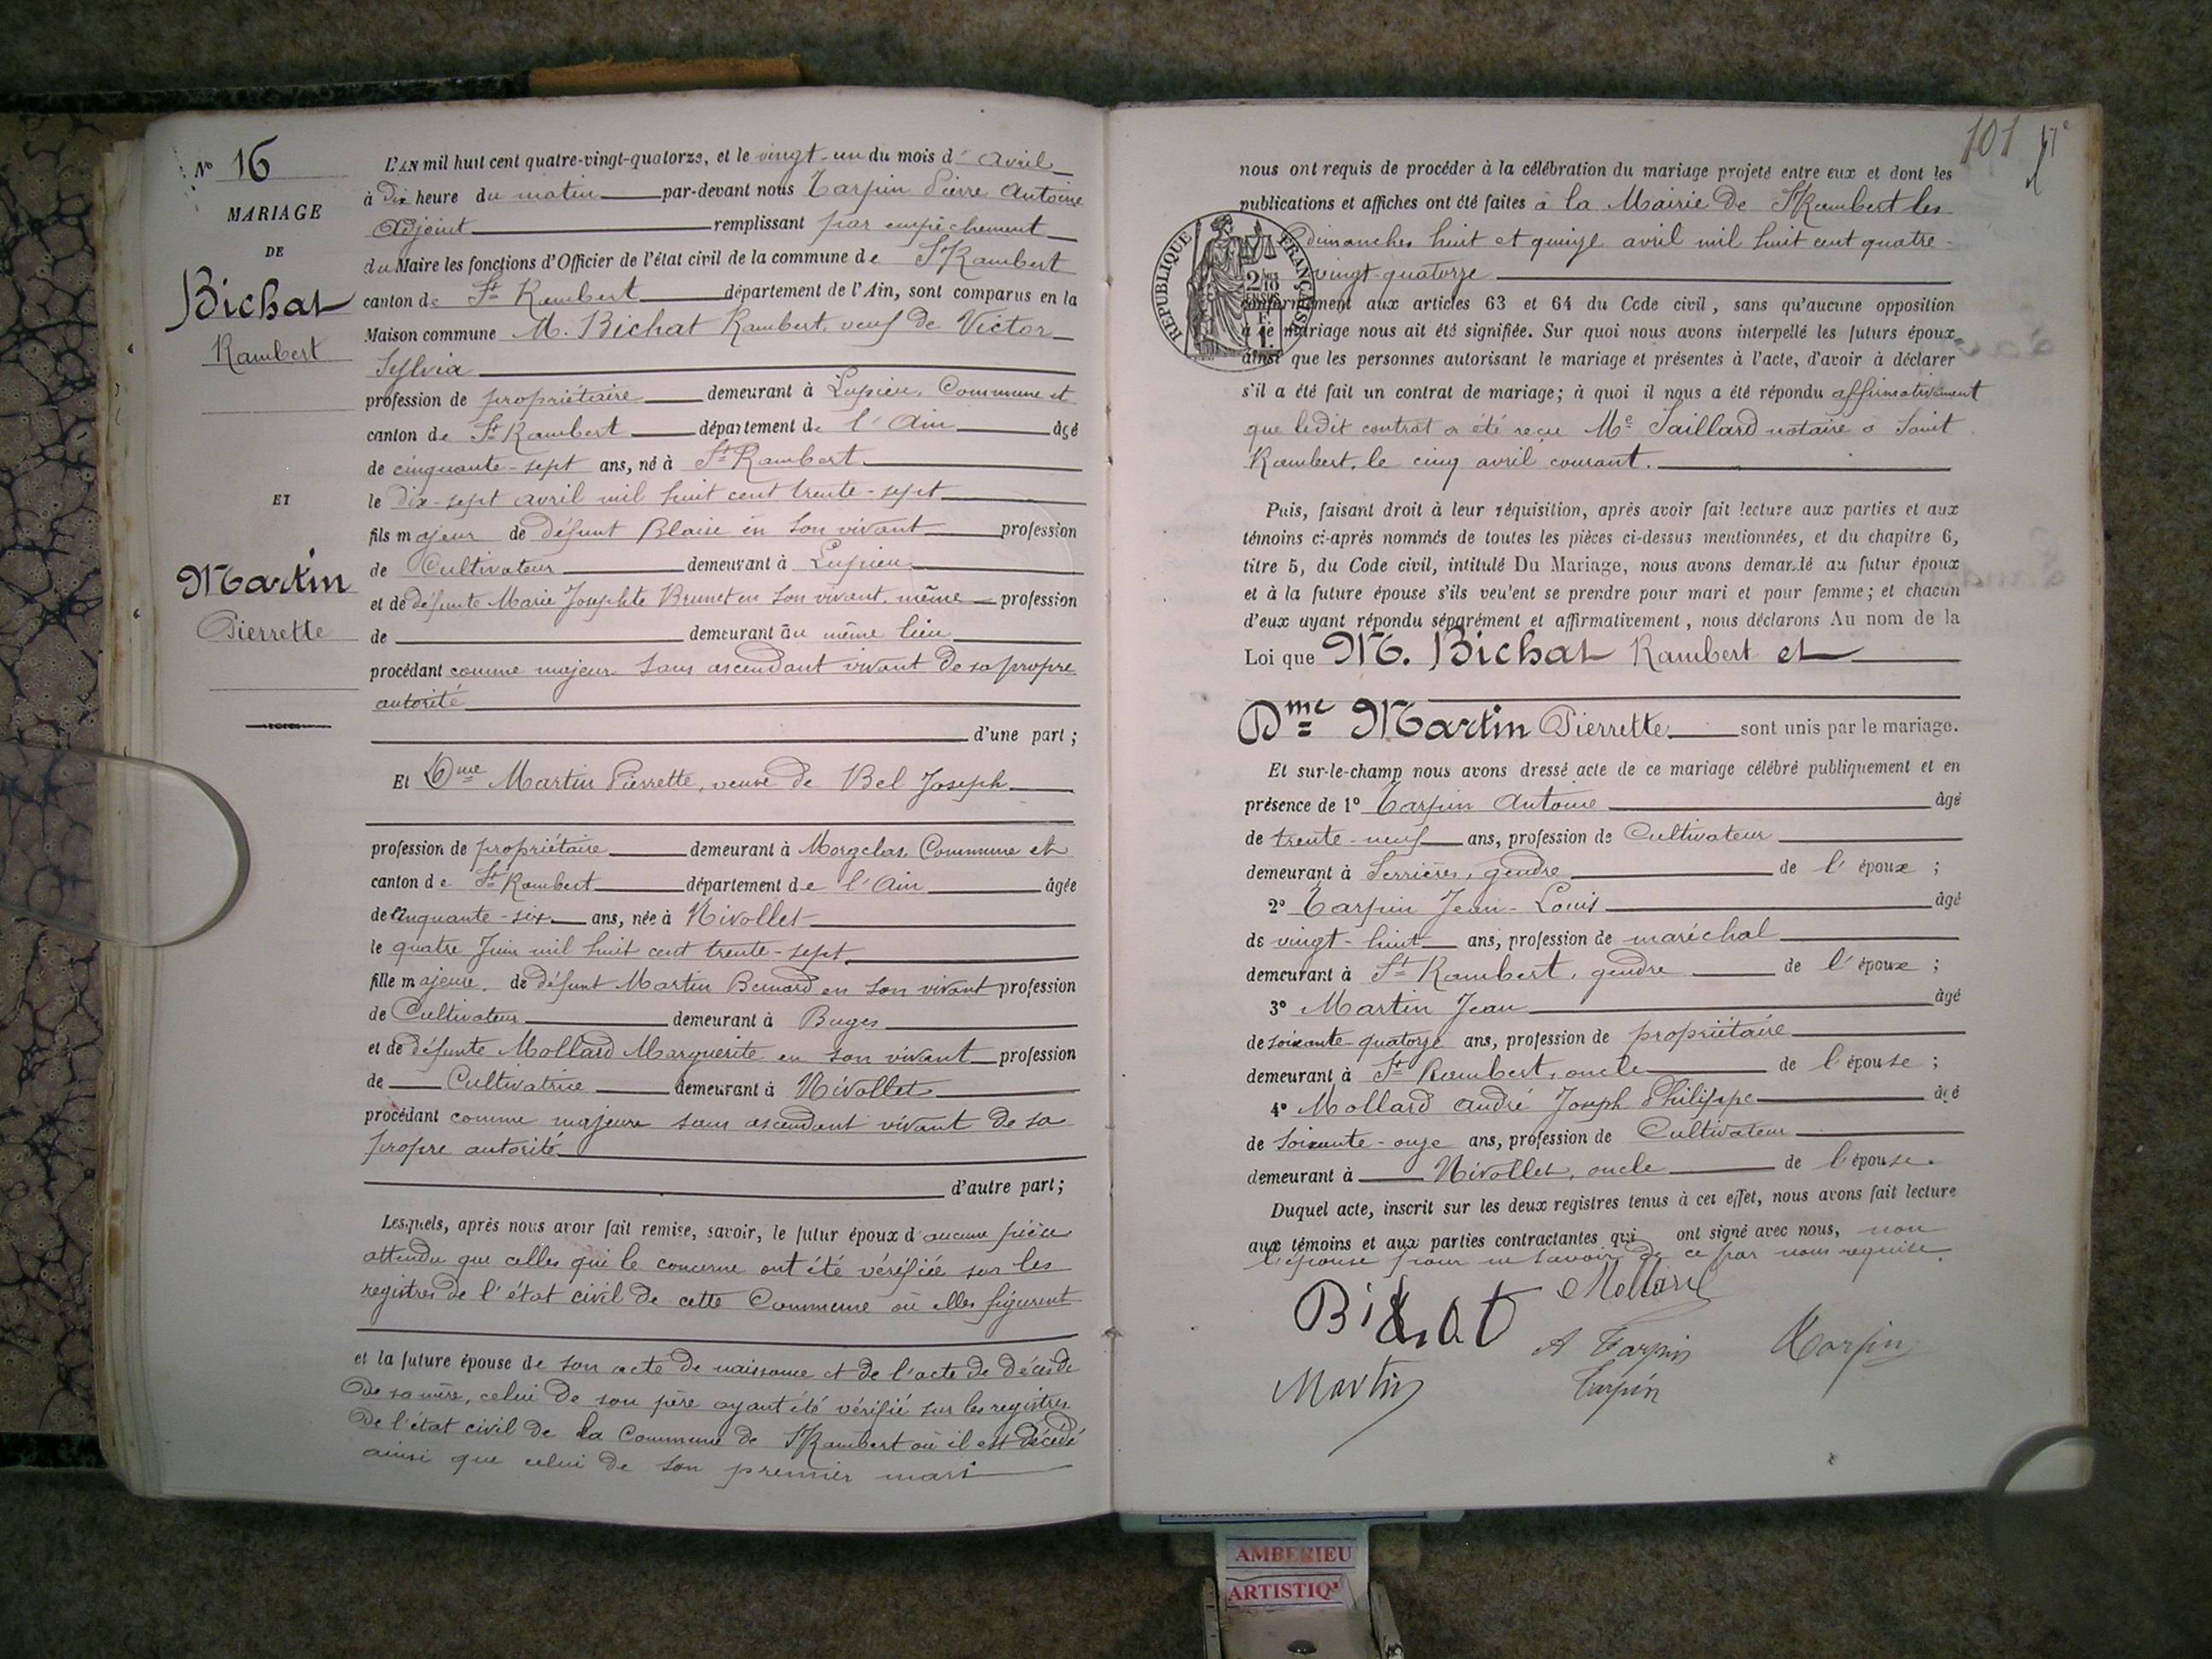 N° 16
MARIAGE
DE
Bichat
Rambert
ET
Martin
Pierrette
L'AN mil huit cent quatre-vingt-quatorze, et le vingt-un du mois d'avril
à dix heure du matin par-devant nous Tarpin Pierre Antoine
adjoint remplissant par empêchement
du Maire les fonctions d'Officier de l'état civil de la commune de St Rambert
canton de St Rambert département de l'Ain, sont comparus en la
Maison commune M. Bichat Rambert, veuf de Victor
Sylvia
profession de propriétaire demeurant à Lupieu, Commune et
canton de St Rambert département de l'Ain âgé
de cinquante-sept ans, né à St Rambert
le dix-sept avril mil huit cent trente-sept
fils majeur de défunt Blaise en son vivant profession
de Cultivateur demeurant à Lupieu
et de défunte Marie Josephte Brunet en son vivant, même profession
de demeurant au même lieu
procédant comme majeur sans ascendant vivant de sa propre
autorité
d'une part ;
Et Dme Martin Pierrette, veuve de Bel Joseph
profession de propriétaire demeurant à Morgelas, Commune et
canton de St Rambert département de l'Ain âgée
de cinquante-six ans, née à Nivollet
le quatre Juin mil huit cent trente-sept
fille majeure de défunt Martin Bernard en son vivant profession
de Cultivateur demeurant à Buges
et de défunte Mollard Marguerite en son vivant profession
de Cultivatrice demeurant à Nivollet
procédant comme majeure sans ascendant vivant de sa
propre autorité
d'autre part ;
Lesquels, après nous avoir fait remise, savoir, le futur époux d'aucune pièce
attendu que celles qui le concerne ont été vérifiée sur les
registres de l'état civil de cette Commune où elles figurent
et la future épouse de son acte de naissance et de l'acte de décès de
de sa mère, celui de son père ayant été vérifié sur les registres
de l'état civil de la Commune de St Rambert où il est décédé
ainsi que celui de son premier mari
101
nous ont requis de procéder à la célébration du mariage projeté entre eux et dont les
publications et affiches ont été faites à la Mairie de St Rambert les
dimanches huit et quinze avril mil huit cent quatre-
vingt-quatorze
RÉPUBLIQUE FRANÇAISE
conformément aux articles 63 et 64 du Code civil, sans qu'aucune opposition
à ce mariage nous ait été signifiée. Sur quoi nous avons interpellé les futurs époux,
ainsi que les personnes autorisant le mariage et présentes à l'acte, d'avoir à déclarer
s'il a été fait un contrat de mariage ; à quoi il nous a été répondu affirmativement
que ledit contrat a été reçu Me Saillard notaire à Saint
Rambert, le cinq avril courant.
Puis, faisant droit à leur réquisition, après avoir fait lecture aux parties et aux
témoins ci-après nommés de toutes les pièces ci-dessus mentionnées, et du chapitre 6,
titre 5, du Code civil, intitulé Du Mariage, nous avons demandé au futur époux
et à la future épouse s'ils veulent se prendre pour mari et pour femme ; et chacun
d'eux ayant répondu séparément et affirmativement, nous déclarons Au nom de la
Loi que M. Bichat Rambert et
Dme Martin Pierrette sont unis par le mariage.
Et sur-le-champ nous avons dressé acte de ce mariage célébré publiquement et en
présence de 1° Tarpin Antoine âgé
de trente-neuf ans, profession de Cultivateur
demeurant à Serrières, gendre de l'époux ;
2° Tarpin Jean-Louis âgé
de vingt-huit ans, profession de maréchal
demeurant à St Rambert, gendre de l'époux ;
3° Martin Jean âgé
de soixante-quatorze ans, profession de propriétaire
demeurant à St Rambert, oncle de l'épouse ;
4° Mollard André Joseph Philippe âgé
de soixante-onze ans, profession de Cultivateur
demeurant à Nivollet, oncle de l'épouse.
Duquel acte, inscrit sur les deux registres tenus à cet effet, nous avons fait lecture
aux témoins et aux parties contractantes qui ont signé avec nous, non
l'épouse pour ne savoir de ce par nous requise.
Bichat Mollard
A Tarpin Tarpin
Martin Tarpin
AMBERIEU
ARTISTIQ